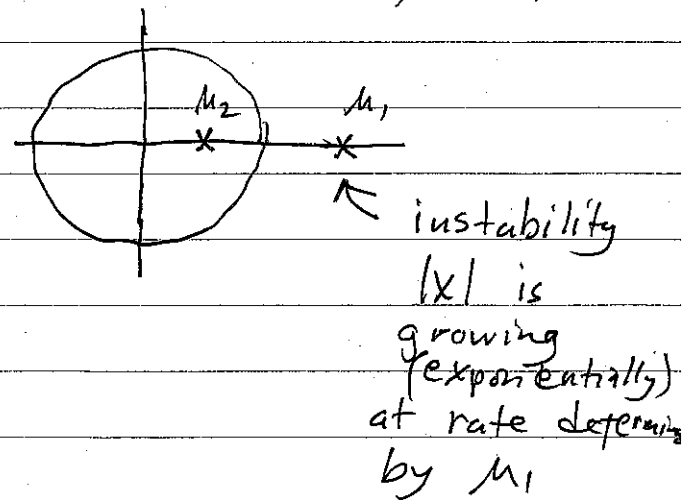 μ₂ μ₁
instability
|x| is
growing
(exponentially)
at rate determined
by μ₁